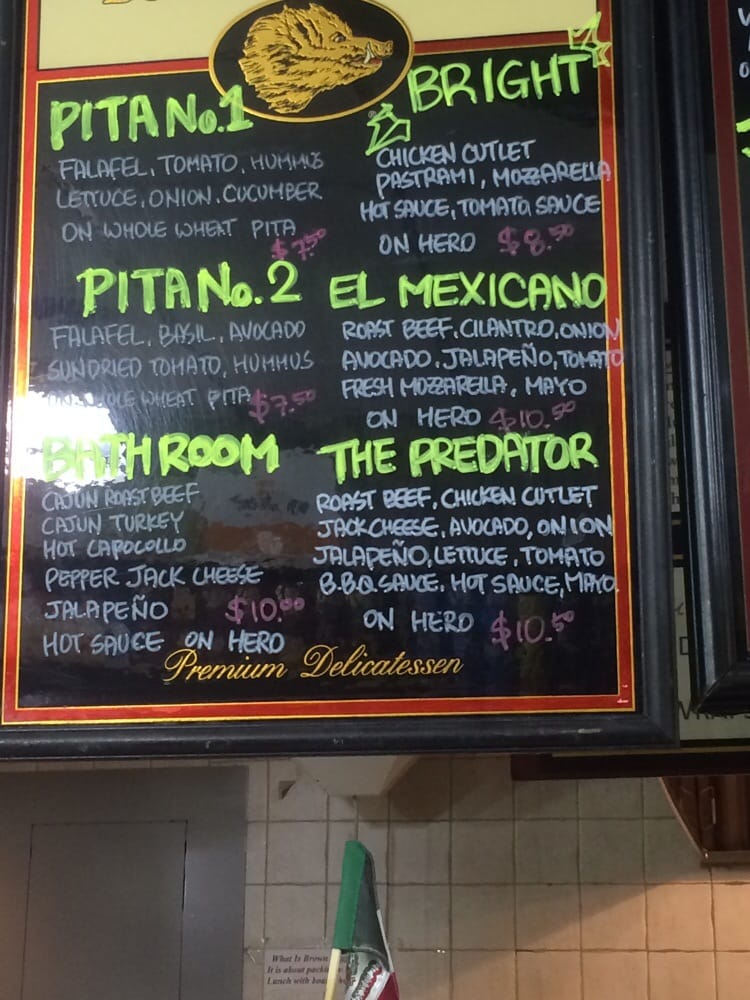 PITA No.1
FALAFEL, TOMATO, HUMMUS
LETTUCE, ONION, CUCUMBER
ON WHOLE WHEAT PITA
$7.50
BRIGHT
CHICKEN CUTLET
PASTRAMI, MOZZARELLA
HOT SAUCE, TOMATO SAUCE
ON HERO $8.50
PITA No.2
FALAFEL, BASIL, AVOCADO
SUNDRIED TOMATO, HUMMUS
ON WHOLE WHEAT PITA $7.50
EL MEXICANO
ROAST BEEF, CILANTRO, ONION
AVOCADO, JALAPEÑO, TOMATO
FRESH MOZZARELLA, MAYO
ON HERO $10.50
BATHROOM
CAJUN ROAST BEEF
CAJUN TURKEY
HOT CAPOCOLLO
PEPPER JACK CHEESE
JALAPEÑO $10.00
HOT SAUCE ON HERO
THE PREDATOR
ROAST BEEF, CHICKEN CUTLET
JACK CHEESE, AVOCADO, ONION
JALAPEÑO, LETTUCE, TOMATO
B.B.Q. SAUCE, HOT SAUCE, MAYO.
ON HERO $10.50
Premium Delicatessen
What Is Brown
It is about
Lunch with